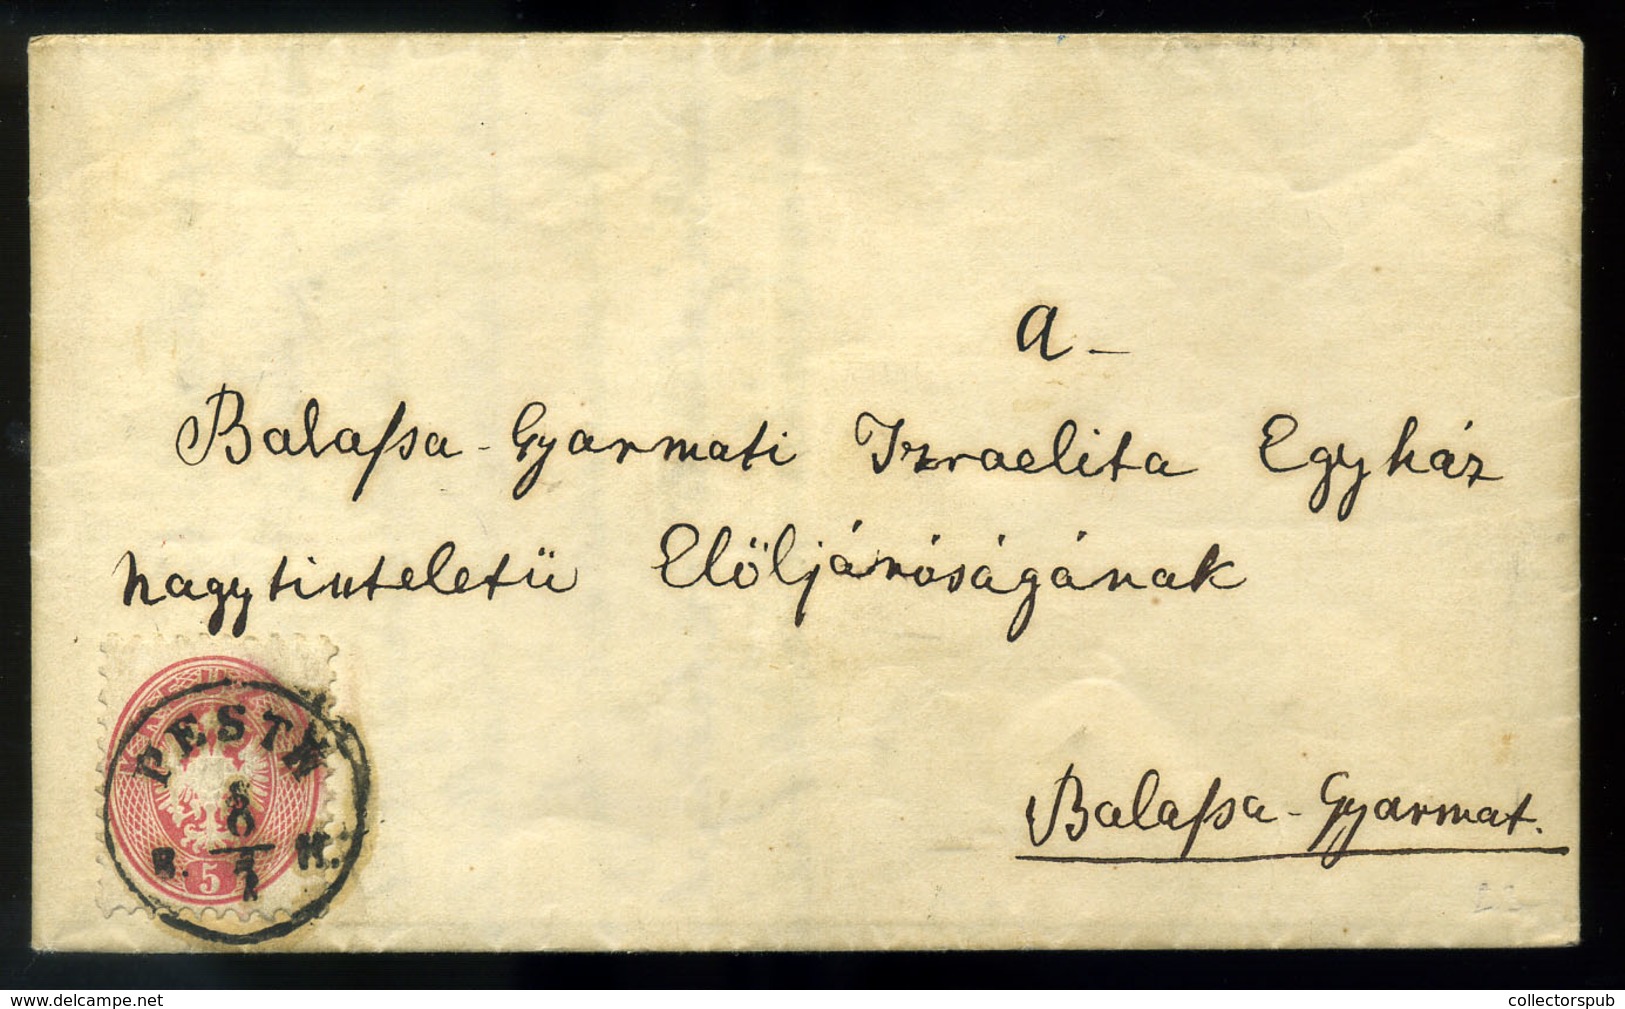 a -
Balaſsa-Gyarmati Izraelita Egyház
nagytinteletü Elöljáróságának
PESTH
5
Balaſsa-Gyarmat.
www.delcampe.net
collectorspub